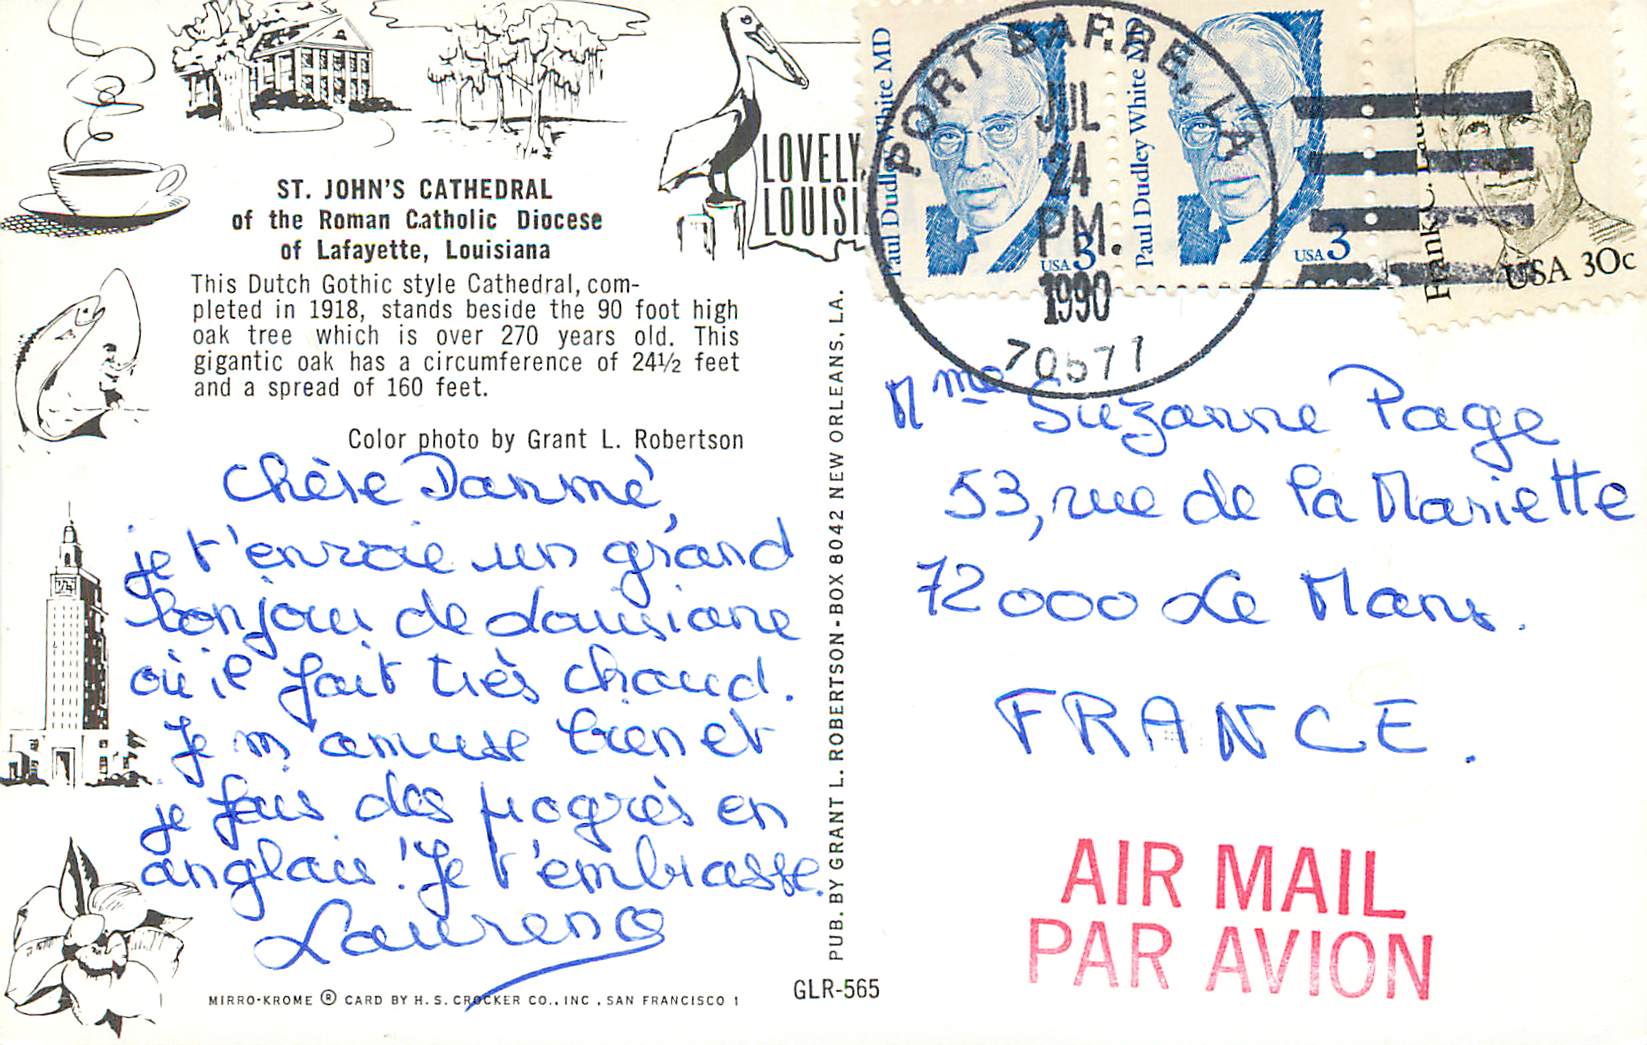 ST. JOHN'S CATHEDRAL
of the Roman Catholic Diocese
of Lafayette, Louisiana
This Dutch Gothic style Cathedral, com-
pleted in 1918, stands beside the 90 foot high
oak tree which is over 270 years old. This
gigantic oak has a circumference of 24½ feet
and a spread of 160 feet.
Color photo by Grant L. Robertson
LOVELY
LOUISI
chère Danmé,
je t'envoie un grand
bonjour de Louisiane
où il fait très chaud.
Je m'amuse bien et
je fais des progrès en
anglais ! Je t'embrasse.
MIRRO-KROME ® CARD BY H. S. CROCKER CO., INC., SAN FRANCISCO 1
GLR-565
PUB. BY GRANT L. ROBERTSON - BOX 8042 NEW ORLEANS, LA.
Paul Dudley White MD
USA 3
Paul Dudley White MD
USA 3
USA 30c
PORT BARRE, LA
JUL
24
PM.
1990
70577
Mme Suzanne Page
53, rue de la Mariette
72000 Le Mans.
FRANCE.
AIR MAIL
PAR AVION